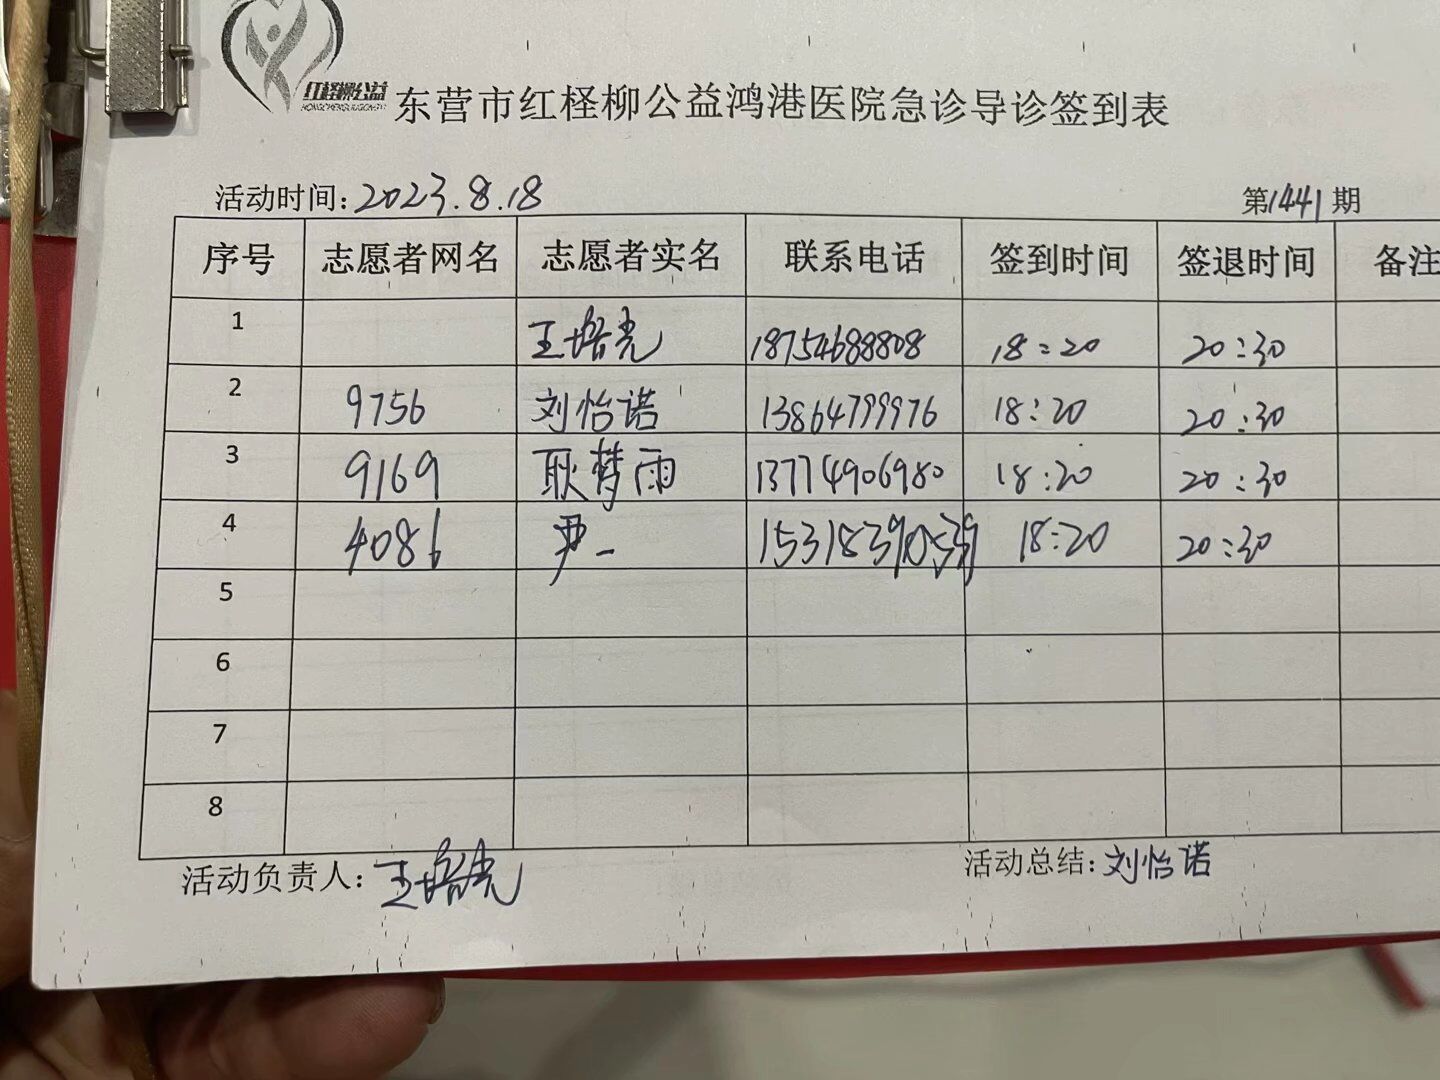 红柽柳公益
HONGCHENGLIUGONGYI
东营市红柽柳公益鸿港医院急诊导诊签到表
活动时间：2023.8.18 第1441期
序号 志愿者网名 志愿者实名 联系电话 签到时间 签退时间 备注
1 王培光 18754688808 18:20 20:30
2 9756 刘怡诺 13864799976 18:20 20:30
3 9169 耿梦雨 13774906980 18:20 20:30
4 4086 尹一 15318390539 18:20 20:30
5
6
7
8
活动负责人：王培光 活动总结：刘怡诺